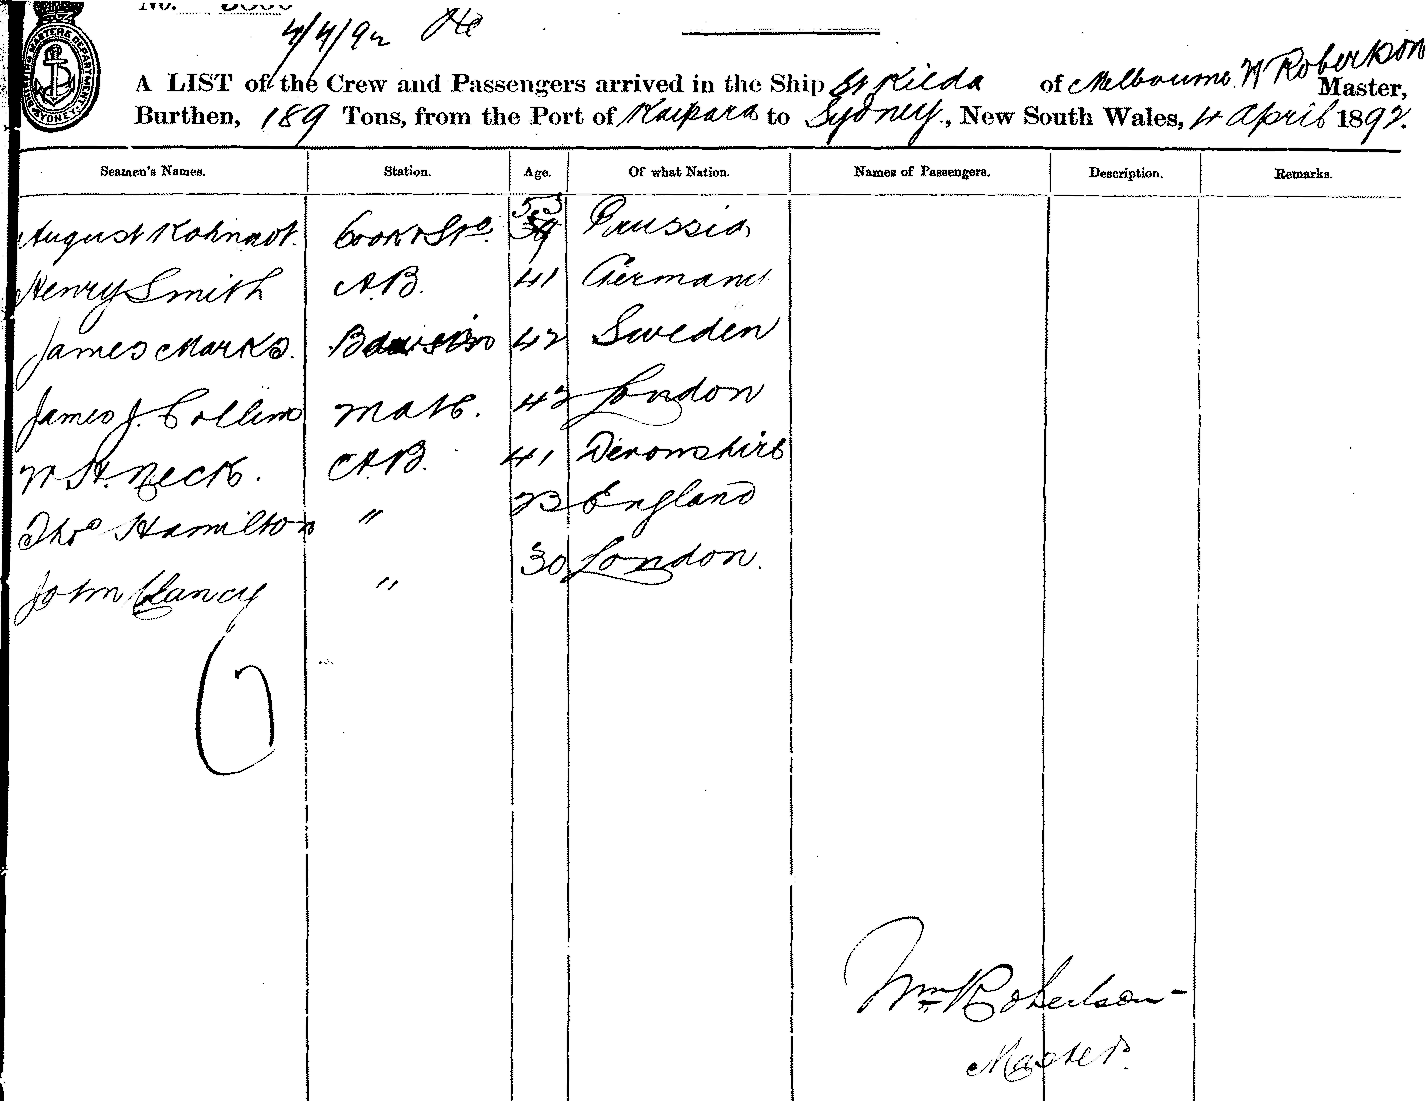 No.
4/4/92 He
A LIST of the Crew and Passengers arrived in the Ship St Kilda of Melbourne W Robertson Master,
Burthen, 189 Tons, from the Port of Kaipara to Sydney, New South Wales, 4 April 1892.
Seamen's Names. Station. Age. Of what Nation. Names of Passengers. Description. Remarks.
53
August Kohnadt. Cook & Std. 39 Prussia
Henry Smith A.B. 41 Germany
James Marks. 42 Sweden
James J. Collins Mate. 42 London
W. H. Neck. A.B. 41 Devonshire
Thos Hamilton " 23 England
John Clancy " 30 London.
Wm Robertson
Master.